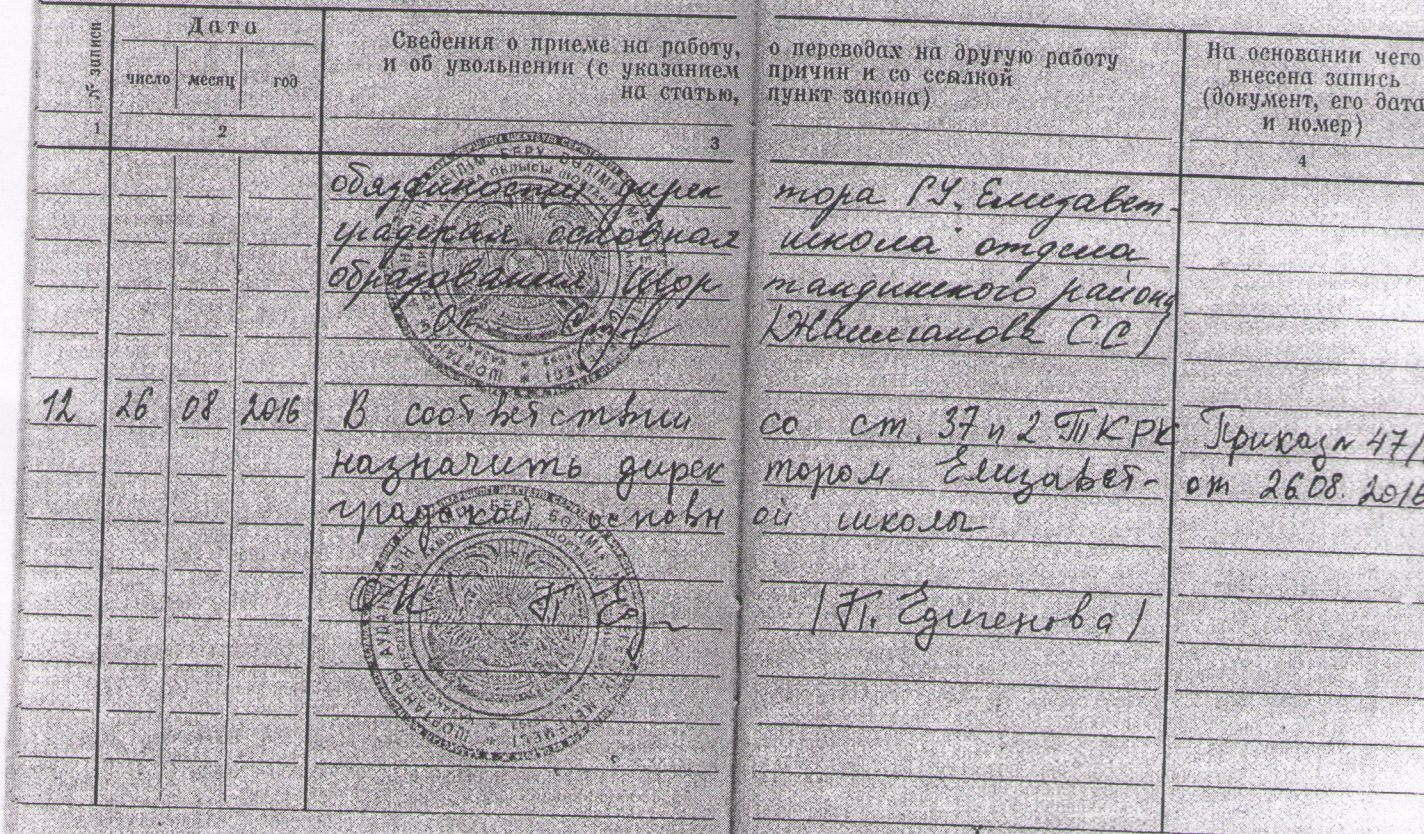 № записи
Дата
число месяц год
Сведения о приеме на работу, о переводах на другую работу
и об увольнении (с указанием причин и со ссылкой
на статью, пункт закона)
На основании чего
внесена запись
(документ, его дата
и номер)
1 2 3 4
обязанности директора ГУ "Елизавет-
градская основная школа" отдела
образования Шортандинского района
ОК /Жаилганова С С/
12 26 08 2016 В соответствии со ст. 37 п 2 ТК РК Приказ № 47/
назначить директором Елизавет- от 26.08.2016
градской основной школы
ОК /Т. Едигенова/